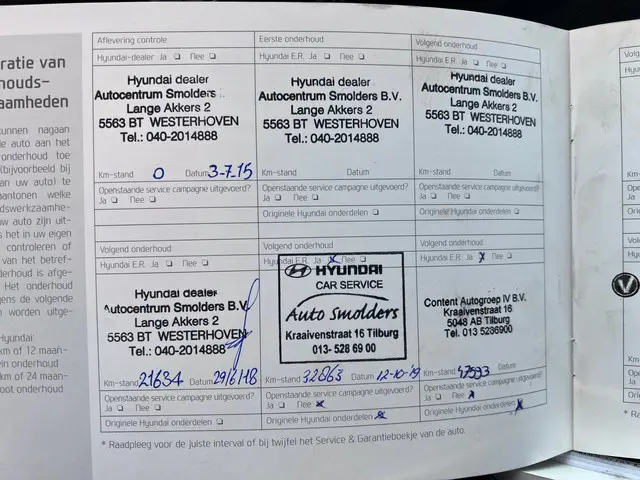 ratie van
houds-
aamheden
unnen nagaan
de auto aan het
onderhoud toe
(bijvoorbeeld bij
an uw auto) te
aantonen welke
dswerkzaamhe-
uw auto zijn uit-
s het in uw eigen
controleren of
van het betref-
derhoud is afge-
Het onderhoud
gens de volgende
n worden uitge-
Hyundai:
km of 12 maan-
ein onderhoud
km of 24 maan-
oot onderhoud
Aflevering controle
Hyundai-dealer Ja ❏ Nee ❏
Hyundai dealer
Autocentrum Smolders
Lange Akkers 2
5563 BT WESTERHOVEN
Tel.: 040-2014888
Km-stand 0 Datum 3-7-15
Openstaande service campagne uitgevoerd?
Ja ❏ Nee ❏
Eerste onderhoud
Hyundai E.R. Ja ❏ Nee ❏
Hyundai dealer
Autocentrum Smolders B.V.
Lange Akkers 2
5563 BT WESTERHOVEN
Tel.: 040-2014888
Km-stand Datum
Openstaande service campagne uitgevoerd?
Ja ❏ Nee ❏
Originele Hyundai onderdelen ❏
Volgend onderhoud
Hyundai E.R. Ja ❏ Nee ❏
Hyundai dealer
Autocentrum Smolders B.V.
Lange Akkers 2
5563 BT WESTERHOVEN
Tel.: 040-2014888
Km-stand Datum
Openstaande service campagne uitgevoerd?
Ja ❏ Nee ❏
Originele Hyundai onderdelen ❏
Volgend onderhoud
Hyundai E.R. Ja ❏ Nee ❏
Hyundai dealer
Autocentrum Smolders B.V.
Lange Akkers 2
5563 BT WESTERHOVEN
Tel.: 040-2014888
Km-stand 21634 Datum 29/6/18
Openstaande service campagne uitgevoerd?
Ja ❏ Nee ❏
Originele Hyundai onderdelen ❏
Volgend onderhoud
Hyundai E.R. Ja x Nee ❏
HYUNDAI
CAR SERVICE
Auto Smolders
Kraaivenstraat 16 Tilburg
013- 528 69 00
Km-stand 32863 12-10-19
Openstaande service campagne uitgevoerd?
Ja ❏ Nee x
Originele Hyundai onderdelen x
Volgend onderhoud
Hyundai E.R. Ja x Nee ❏
Content Autogroep IV B.V.
Kraaivenstraat 16
5048 AB Tilburg
Tel. 013 5236900
Km-stand Datum
Openstaande service campagne uitgevoerd?
Ja ❏ Nee x
Originele Hyundai onderdelen x
* Raadpleeg voor de juiste interval of bij twijfel het Service & Garantieboekje van de auto.